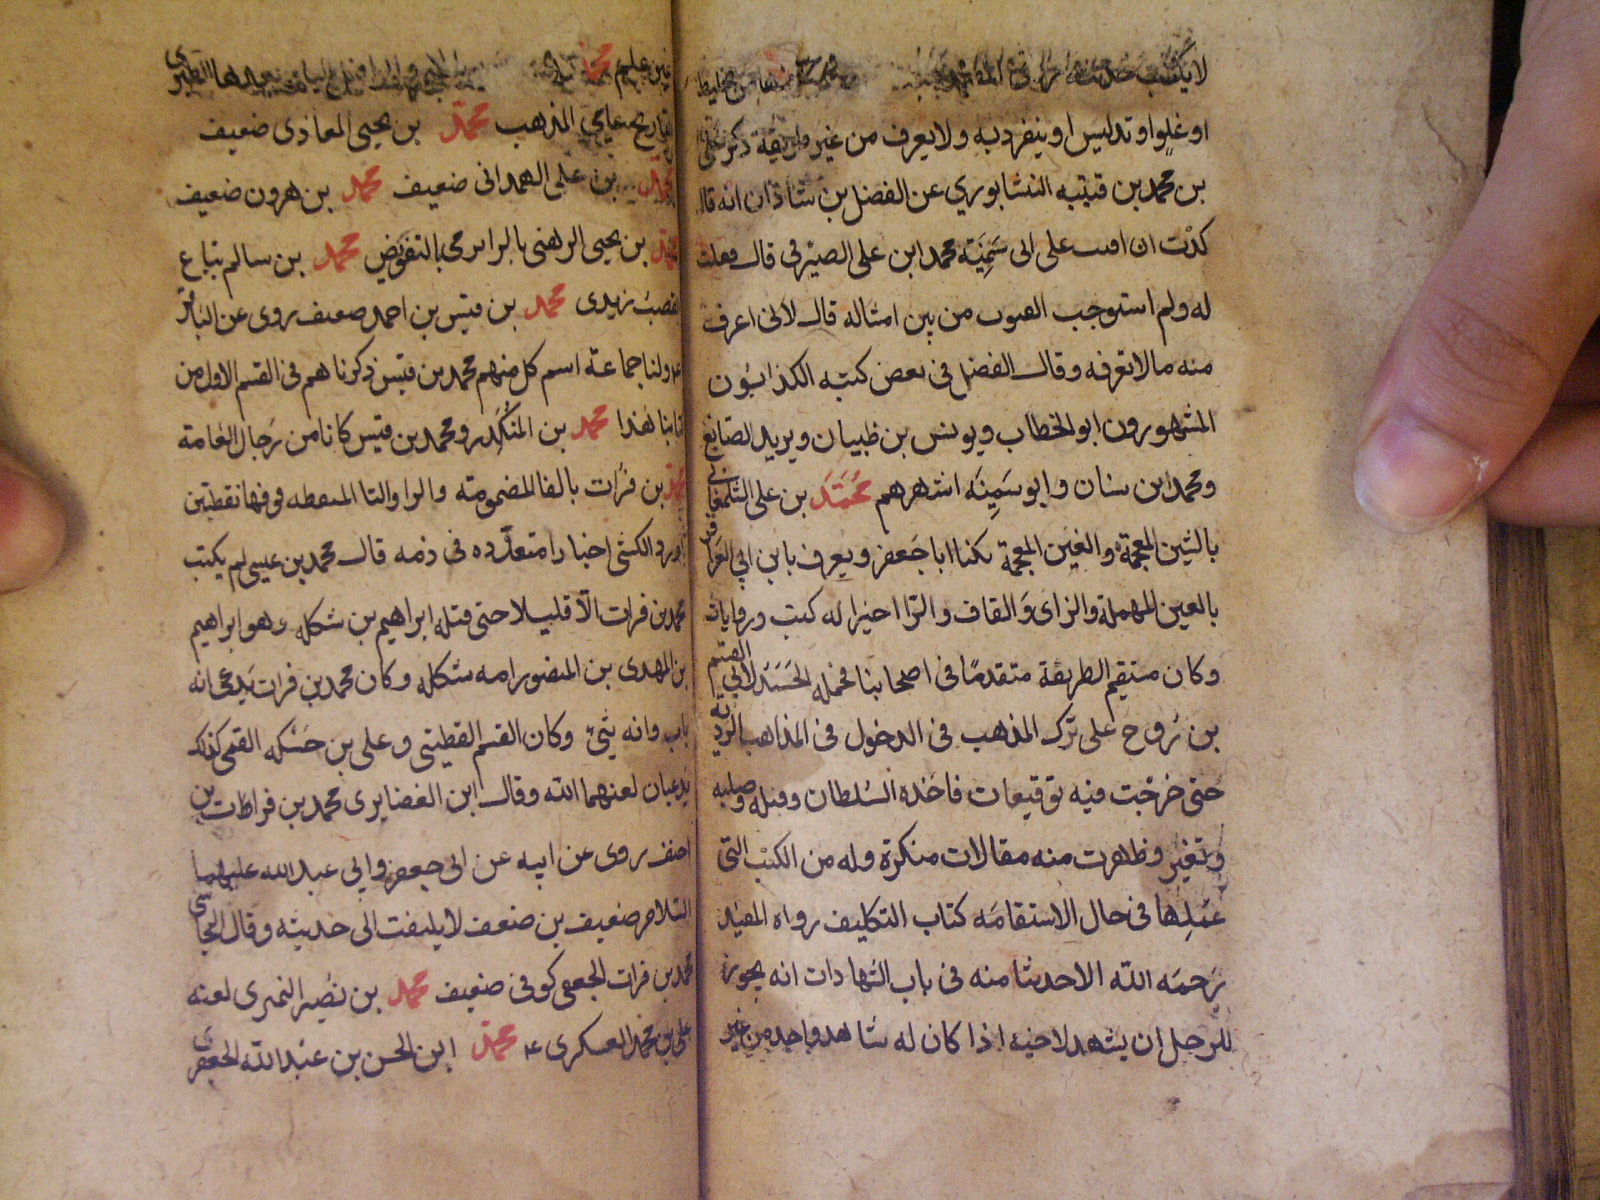 لا يكتب حديثه
او غلو او تدليس او ينفرد به ولا يعرف من غير طريقه ذكر على
بن محمد بن قتيبه النشابوري عن الفضل بن شاذان انه قال
كدت ان اقنت على ابى سمينه محمد ابن على الصيرفى قال فقلت
له ولم استوجب القنوت من بين امثاله قال لانى اعرف
منه ما لا تعرفه وقال الفضل فى بعض كتبه الكذابون
المشهورون ابو الخطاب ويونس بن ظبيان ويزيد الصايغ
ومحمد ابن سنان وابو سمينه اشهرهم محمد بن على الشلمغانى
بالشين المعجمة والغين المعجمة يكنا ابا جعفر ويعرف بابن ابي العزاقر
بالعين المهملة والزاى والقاف والرا اخيرا له كتب وروايات
وكان مستقيم الطريقة متقدما فى اصحابنا فحمله الحسد لابي القسم
بن روح على ترك المذهب فى الدخول فى المذاهب الرديه
حتى خرجت فيه توقيعات فاخذه السلطان وقتله وصلبه
وتغير وظهرت منه مقالات منكرة وله من الكتب التى
عملها فى حال الاستقامه كتاب التكليف رواه المفيد
رحمه الله الا حديثا منه فى باب الشهادات انه يجوز
للرجل ان يشهد لاخيه اذا كان له شاهد واحد من غير
علم محمد الطبرى
التاريخ عامى المذهب محمد بن يحيى المعاذى ضعيف
محمد بن على الهمدانى ضعيف محمد بن هرون ضعيف
محمد بن يحيى الرهنى بالرا يرمى بالتفويض محمد بن سالم بياع
القصب زيدى محمد بن قيس بن احمد ضعيف روى عن الباقر
ع ولنا جماعة اسم كل منهم محمد بن قيس ذكرناهم فى القسم الاول من
كتابنا هذا محمد بن المنكدر ومحمد بن قيس كانا من رجال العامه
محمد بن فرات بالفا المضمومة والرا والتا المنقطه فوقها نقطتين
اورد الكشى اخبارا متعدده فى ذمه قال محمد بن عيسى لم يكتب
محمد بن فرات الا قليلا حتى قتله ابراهيم بن شكله وهو ابراهيم
بن المهدى بن المنصور امه شكله وكان محمد بن فرات يدعى انه
باب وانه نبى وكان القسم اليقطينى وعلى بن حسكه القمى كذلك
يدعيان لعنهما الله وقال ابن الغضايرى محمد بن فرات بن
احنف روى عن ابيه عن ابى جعفر وابي عبد الله عليهما
السلام ضعيف بن ضعيف لا يلتفت الى حديثه وقال النجاشى
محمد بن فرات الجعفى كوفى ضعيف محمد بن نصير النميرى لعنه
على بن محمد العسكرى ع محمد ابن الحسن بن عبد الله الجعفرى